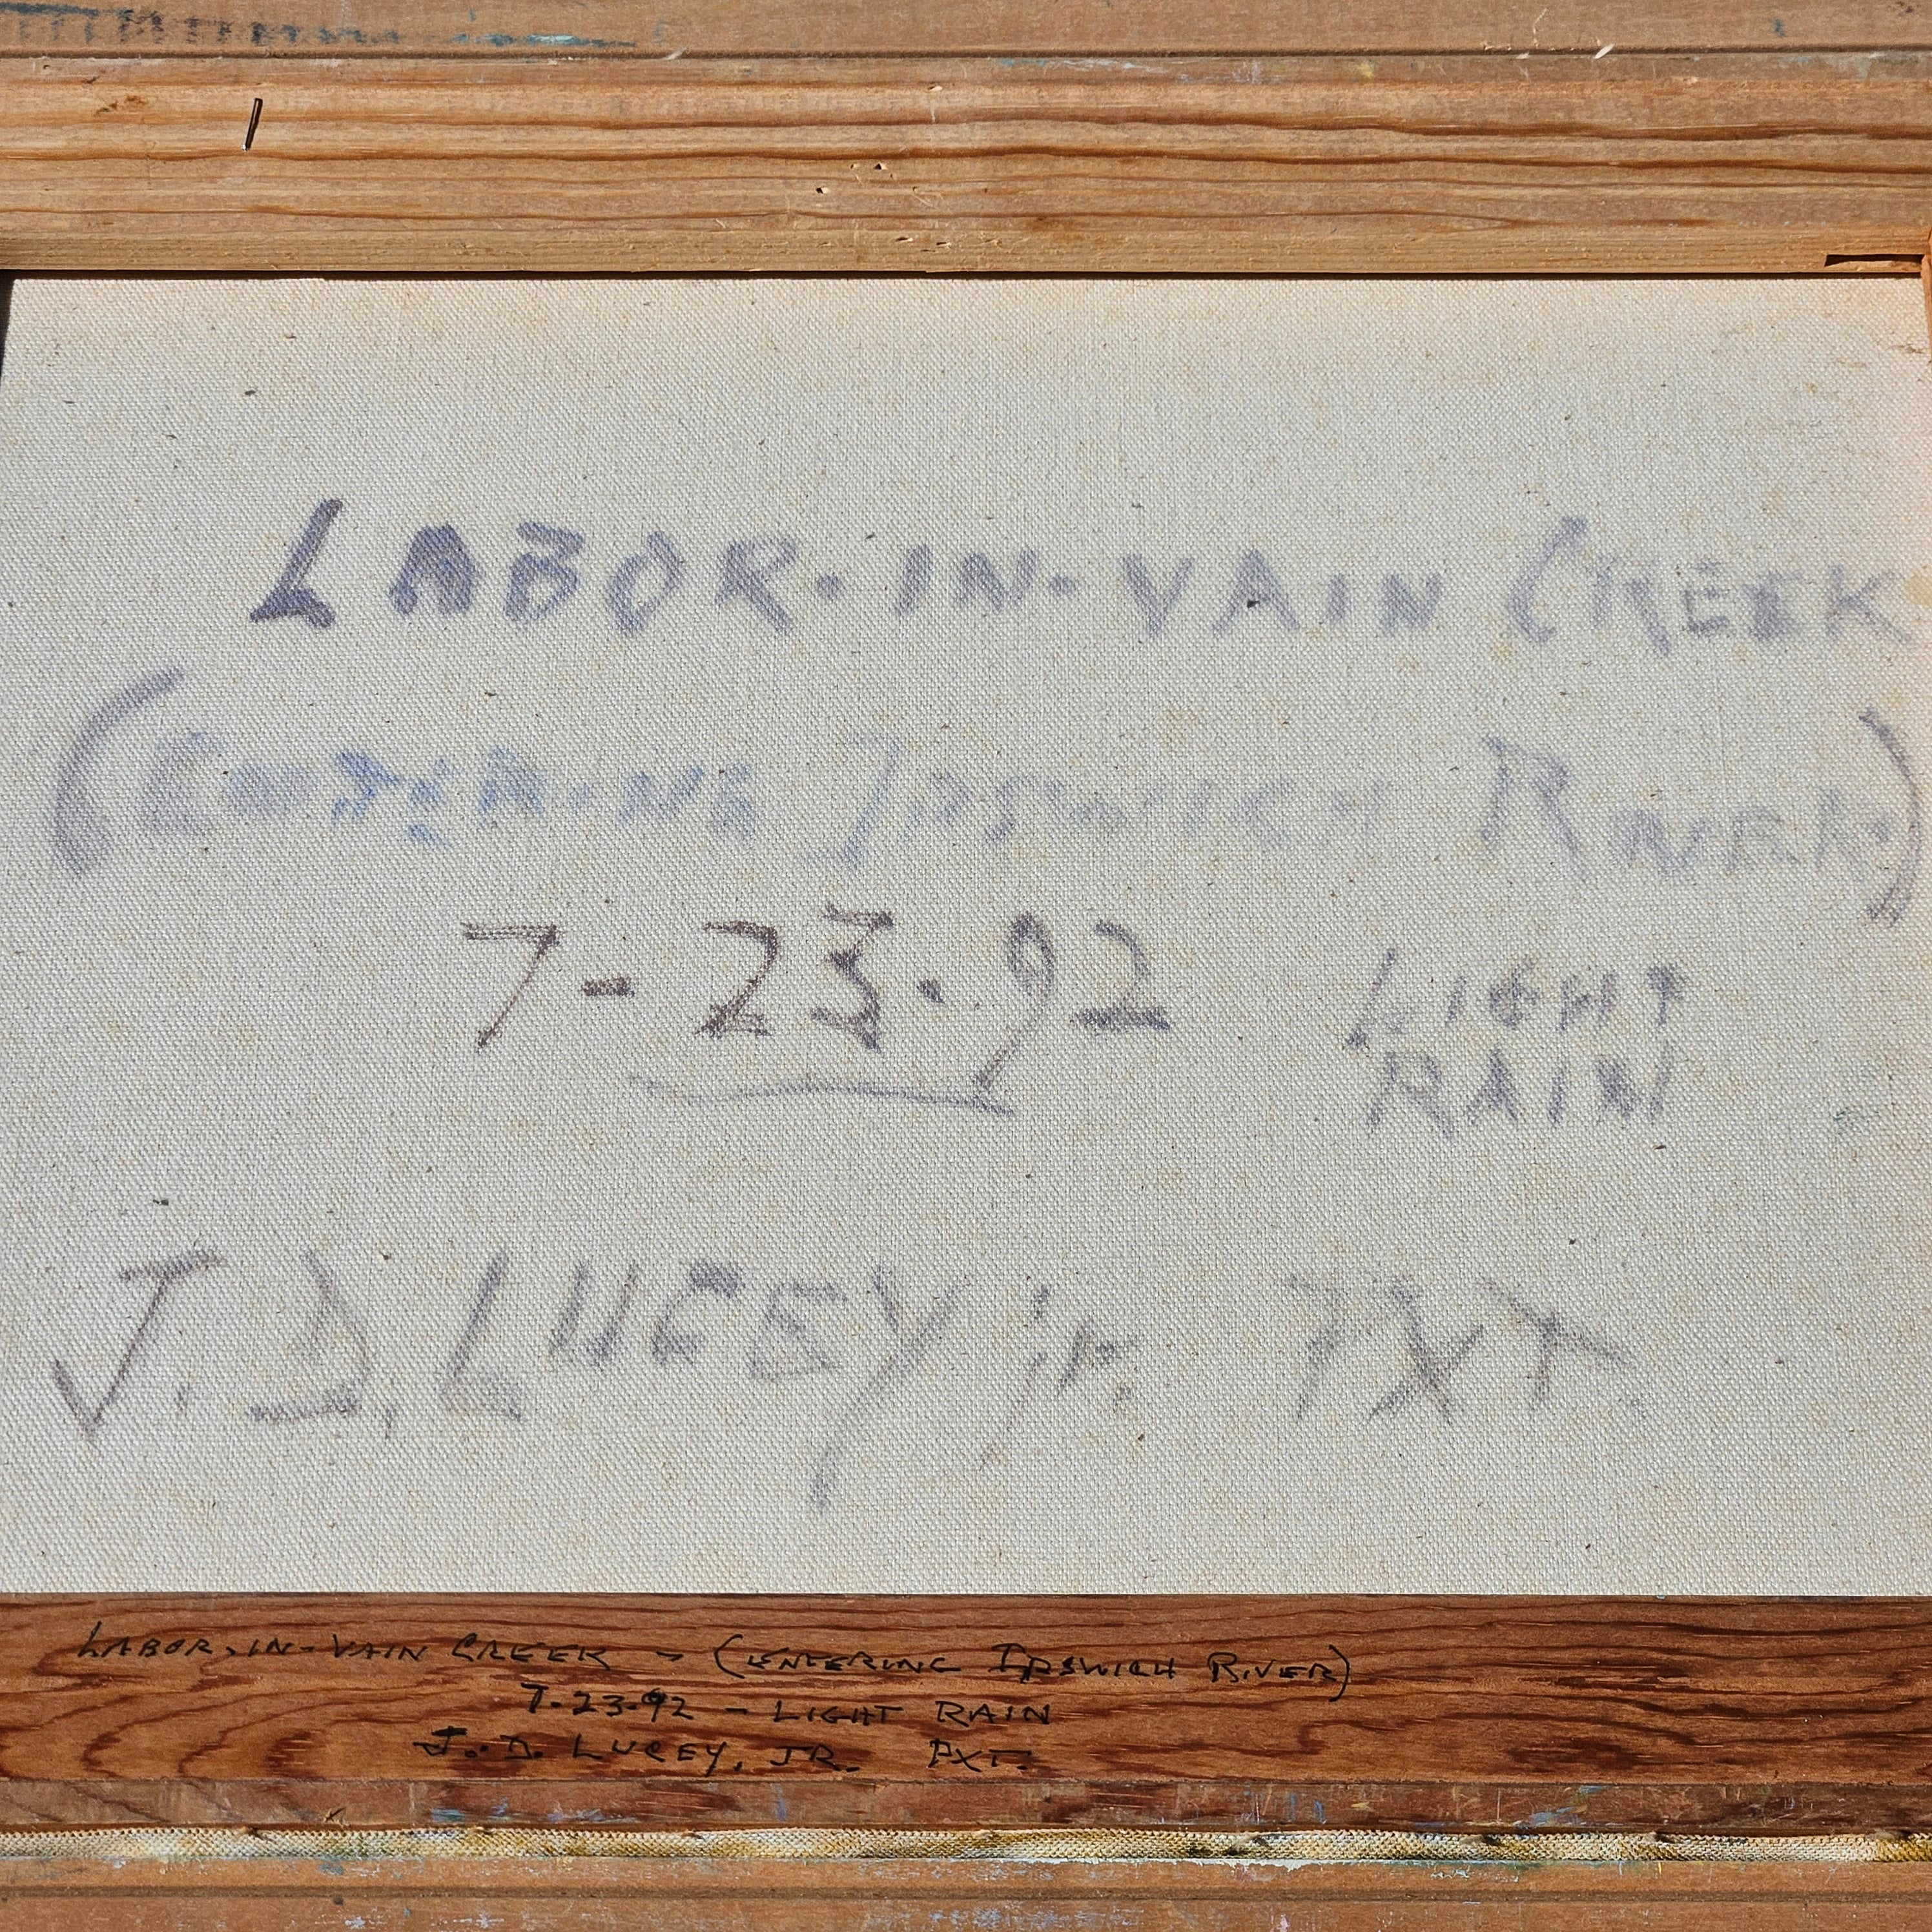 LABOR-IN-VAIN CREEK
(ENTERING IPSWICH RIVER)
7-23-92 LIGHT
RAIN
J. D. LUCEY Jr. PXT
LABOR-IN-VAIN CREEK - (ENTERING IPSWICH RIVER)
7-23-92 - LIGHT RAIN
J. D. LUCEY, JR. PXT.